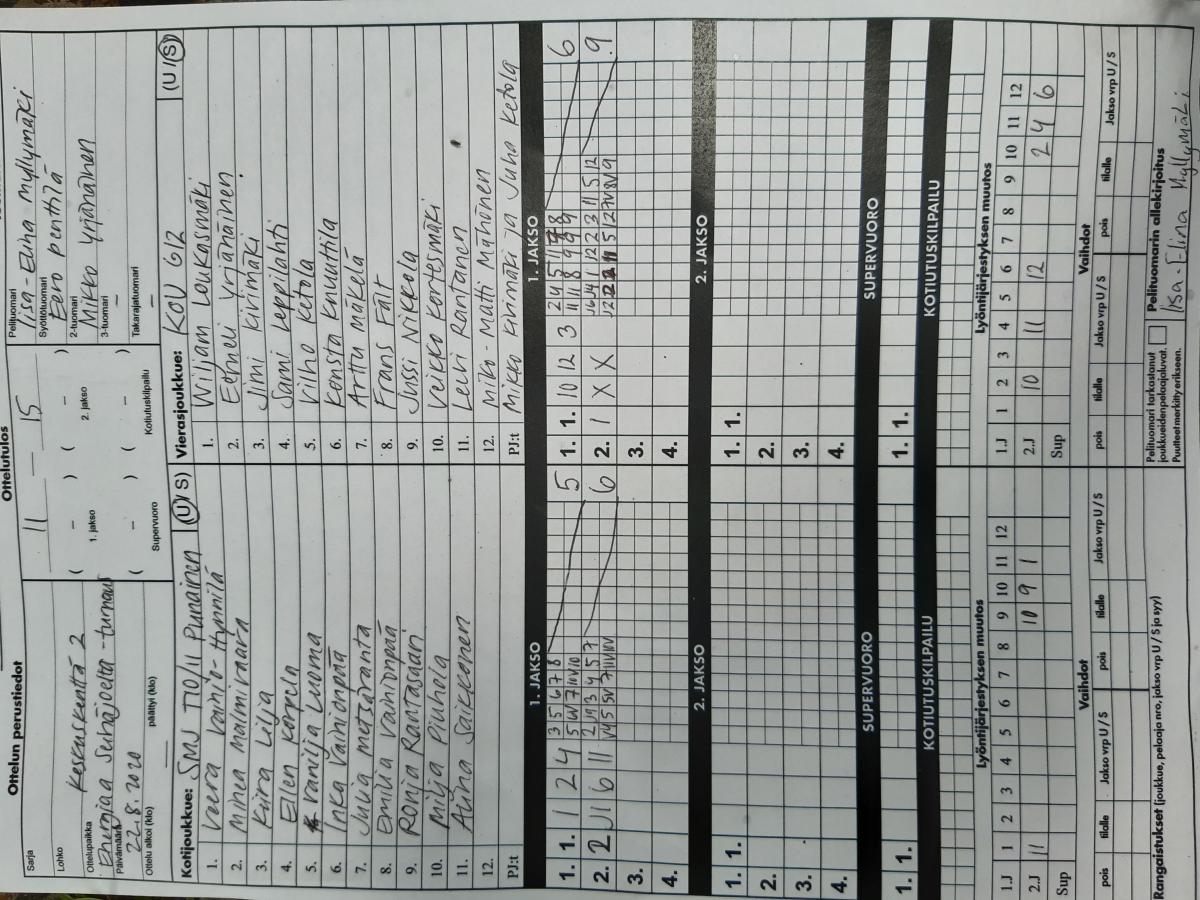 Ottelun perustiedot
Sarja
Lohko
Ottelupaikka Keskuskenttä 2
Energiaa Seinäjoelta -turnaus
Päivämäärä 22.8.2020
Ottelu alkoi (klo) päättyi (klo)
Ottelutulos
11 15
( – ) ( – )
1. jakso 2. jakso
( – ) ( – )
Supervuoro Kotiutuskilpailu
Pelituomari Iisa-Elina Myllymäki
Syöttötuomari Eero Penttilä
2-tuomari Mikko Yrjänäinen
3-tuomari –
Takarajatuomari –
Kotijoukkue: SMJ T10/11 Punainen (U/S)
1. Veera Vainio-Hynnilä
2. Minea Malmivaara
3. Kiira Lilja
4. Ellen Korpela
5. Vanilja Luoma
6. Inka Vainionpää
7. Julia Metsäranta
8. Emilia Vainionpää
9. Ronja Rantasaari
10. Milja Piuhola
11. Alina Saikkonen
12.
PJ:t
Vierasjoukkue: KOU G12 (U/S)
1. Wiljam Loukasmäki
2. Etheli Yrjänäinen
3. Jimi Kivimäki
4. Sami Leppilahti
5. Vilho Ketola
6. Konsta Knuuttila
7. Arttu Mäkelä
8. Frans Fält
9. Jussi Nikkola
10. Veikko Kortesmäki
11. Leevi Rantanen
12. Miko-Matti Mähönen
PJ:t Mikko Kivimäki ja Juha Ketola
1. JAKSO
1. 1. 1 2 4 5
2. 2 J1 6 11 6
3.
4.
2. JAKSO
1. 1.
2.
3.
4.
SUPERVUORO
1. 1.
KOTIUTUSKILPAILU
1. JAKSO
1. 1. 10 12 3 6
2. 1 X X 9
3.
4.
2. JAKSO
1. 1.
2.
3.
4.
SUPERVUORO
1. 1.
KOTIUTUSKILPAILU
Lyöntijärjestyksen muutos
1.J 1 2 3 4 5 6 7 8 9 10 11 12
2.J 11 10 9 1
Sup
Vaihdot
pois tilalle Jakso vrp U / S pois tilalle Jakso vrp U / S
Lyöntijärjestyksen muutos
1.J 1 2 3 4 5 6 7 8 9 10 11 12
2.J 10 11 12 2 4 6
Sup
Vaihdot
pois tilalle Jakso vrp U / S pois tilalle Jakso vrp U / S
Rangaistukset (joukkue, pelaaja nro, jakso vrp U / S ja syy)
Pelituomari tarkastanut
joukkueidenpelaajaluvat.
Puutteet merkitty erikseen.
Pelituomarin allekirjoitus
Iisa-Elina Myllymäki